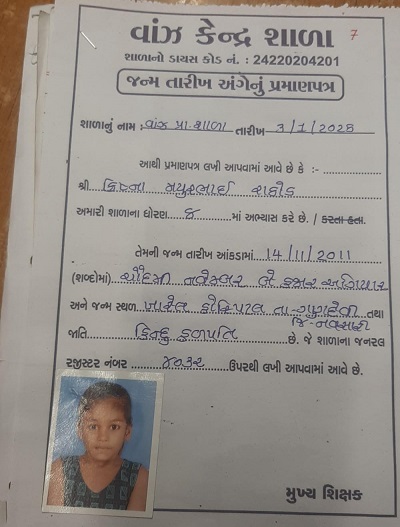 વાંઝ કેન્દ્ર શાળા
7
શાળાનો ડાયસ કોડ નં. : 24220204201
જન્મ તારીખ અંગેનું પ્રમાણપત્ર
શાળાનું નામ : વાંઝ પ્રા. શાળા તારીખ 3/1/2023
આથી પ્રમાણપત્ર લખી આપવામાં આવે છે કે :-
શ્રી ક્રિષ્ના મયુરભાઈ રાઠોડ
અમારી શાળાના ધોરણ ૪ માં અભ્યાસ કરે છે. / કરતા હતા.
તેમની જન્મ તારીખ આંકડામાં 14/11/2011
(શબ્દોમાં) ચૌદમી નવેમ્બર બે હજાર અગિયાર
અને જન્મ સ્થળ ખારેલ હોસ્પિટાલ તા-ગણદેવી તથા
જિ-નવસારી
જાતિ હિન્દુ હળપતિ છે. જે શાળાના જનરલ
રજીસ્ટર નંબર ૪૦૩૨ ઉપરથી લખી આપવામાં આવે છે.
મુખ્ય શિક્ષક